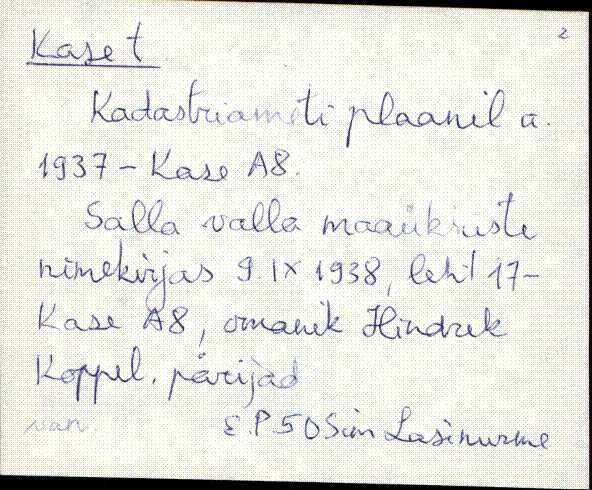 2
Kase t
Kadastriameti plaanil a.
1937 – Kase A8.
Salla valla maaüksuste
nimekirjas 9. IX 1938, leht 17 –
Kase A8, omanik Hindrek
Koppel, pärijad
van. E.P 50 Sim Lasinurme